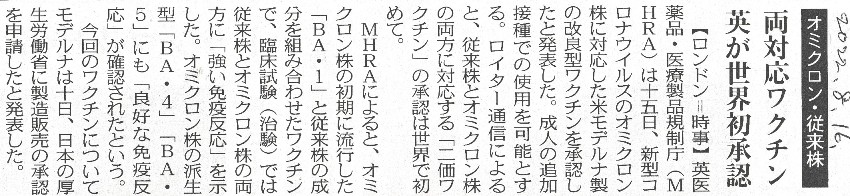 2022.8.16.
オミクロン・従来株
両対応ワクチン
英が世界初承認
【ロンドン＝時事】英医
薬品・医療製品規制庁（Ｍ
ＨＲＡ）は十五日、新型コ
ロナウイルスのオミクロン
株に対応した米モデルナ製
の改良型ワクチンを承認し
たと発表した。成人の追加
接種での使用を可能とす
る。ロイター通信による
と、従来株とオミクロン株
の両方に対応する「二価ワ
クチン」の承認は世界で初
めて。
ＭＨＲＡによると、オミ
クロン株の初期に流行した
「ＢＡ・１」と従来株の成
分を組み合わせたワクチン
で、臨床試験（治験）では
従来株とオミクロン株の両
方に「強い免疫反応」を示
した。オミクロン株の派生
型「ＢＡ・４」「ＢＡ・
５」にも「良好な免疫反
応」が確認されたという。
今回のワクチンについて
モデルナは十日、日本の厚
生労働省に製造販売の承認
を申請したと発表した。